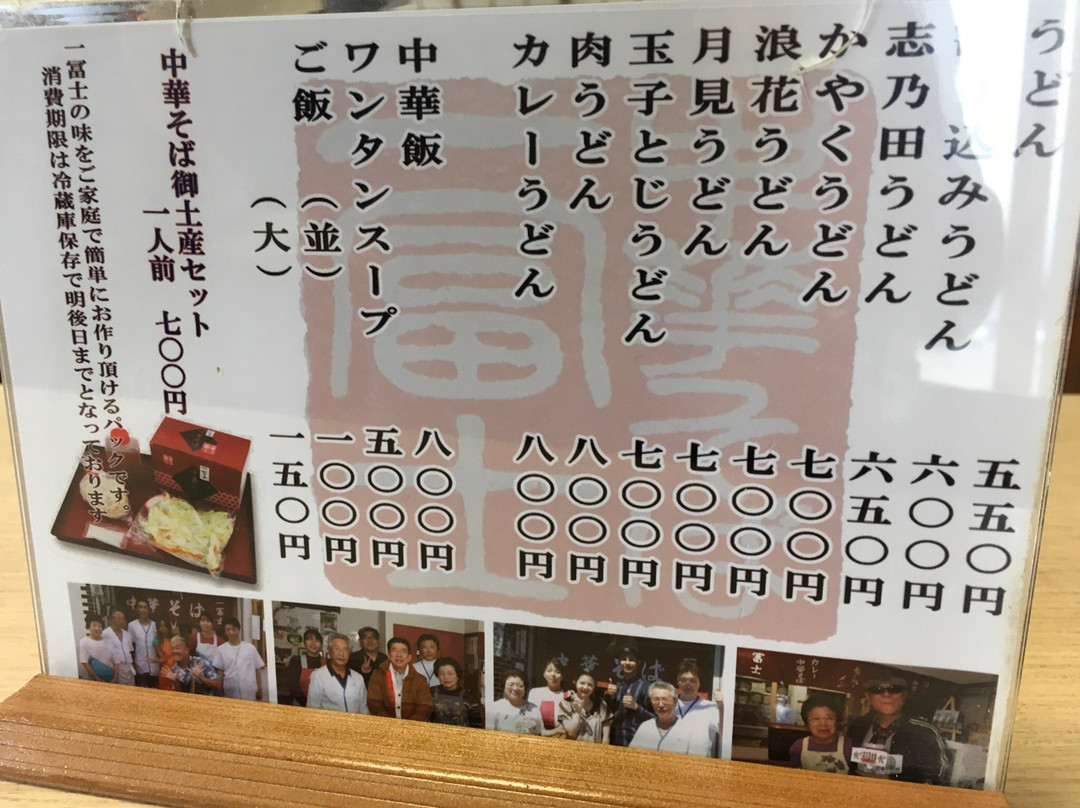 うどん 五五〇円
込みうどん 六〇〇円
志乃田うどん 六五〇円
かやくうどん 七〇〇円
浪花うどん 七〇〇円
月見うどん 七〇〇円
玉子とじうどん 七〇〇円
肉うどん 八〇〇円
カレーうどん 八〇〇円
中華飯 八〇〇円
ワンタンスープ 五〇〇円
ご飯（並） 一〇〇円
（大） 一五〇円
中華そば御土産セット
一人前 七〇〇円
一冨士の味をご家庭で簡単にお作り頂けるパックです。
消費期限は冷蔵庫保存で明後日までとなっております
中華そば
一冨士
中華そば
冨士
カレー
中華そば